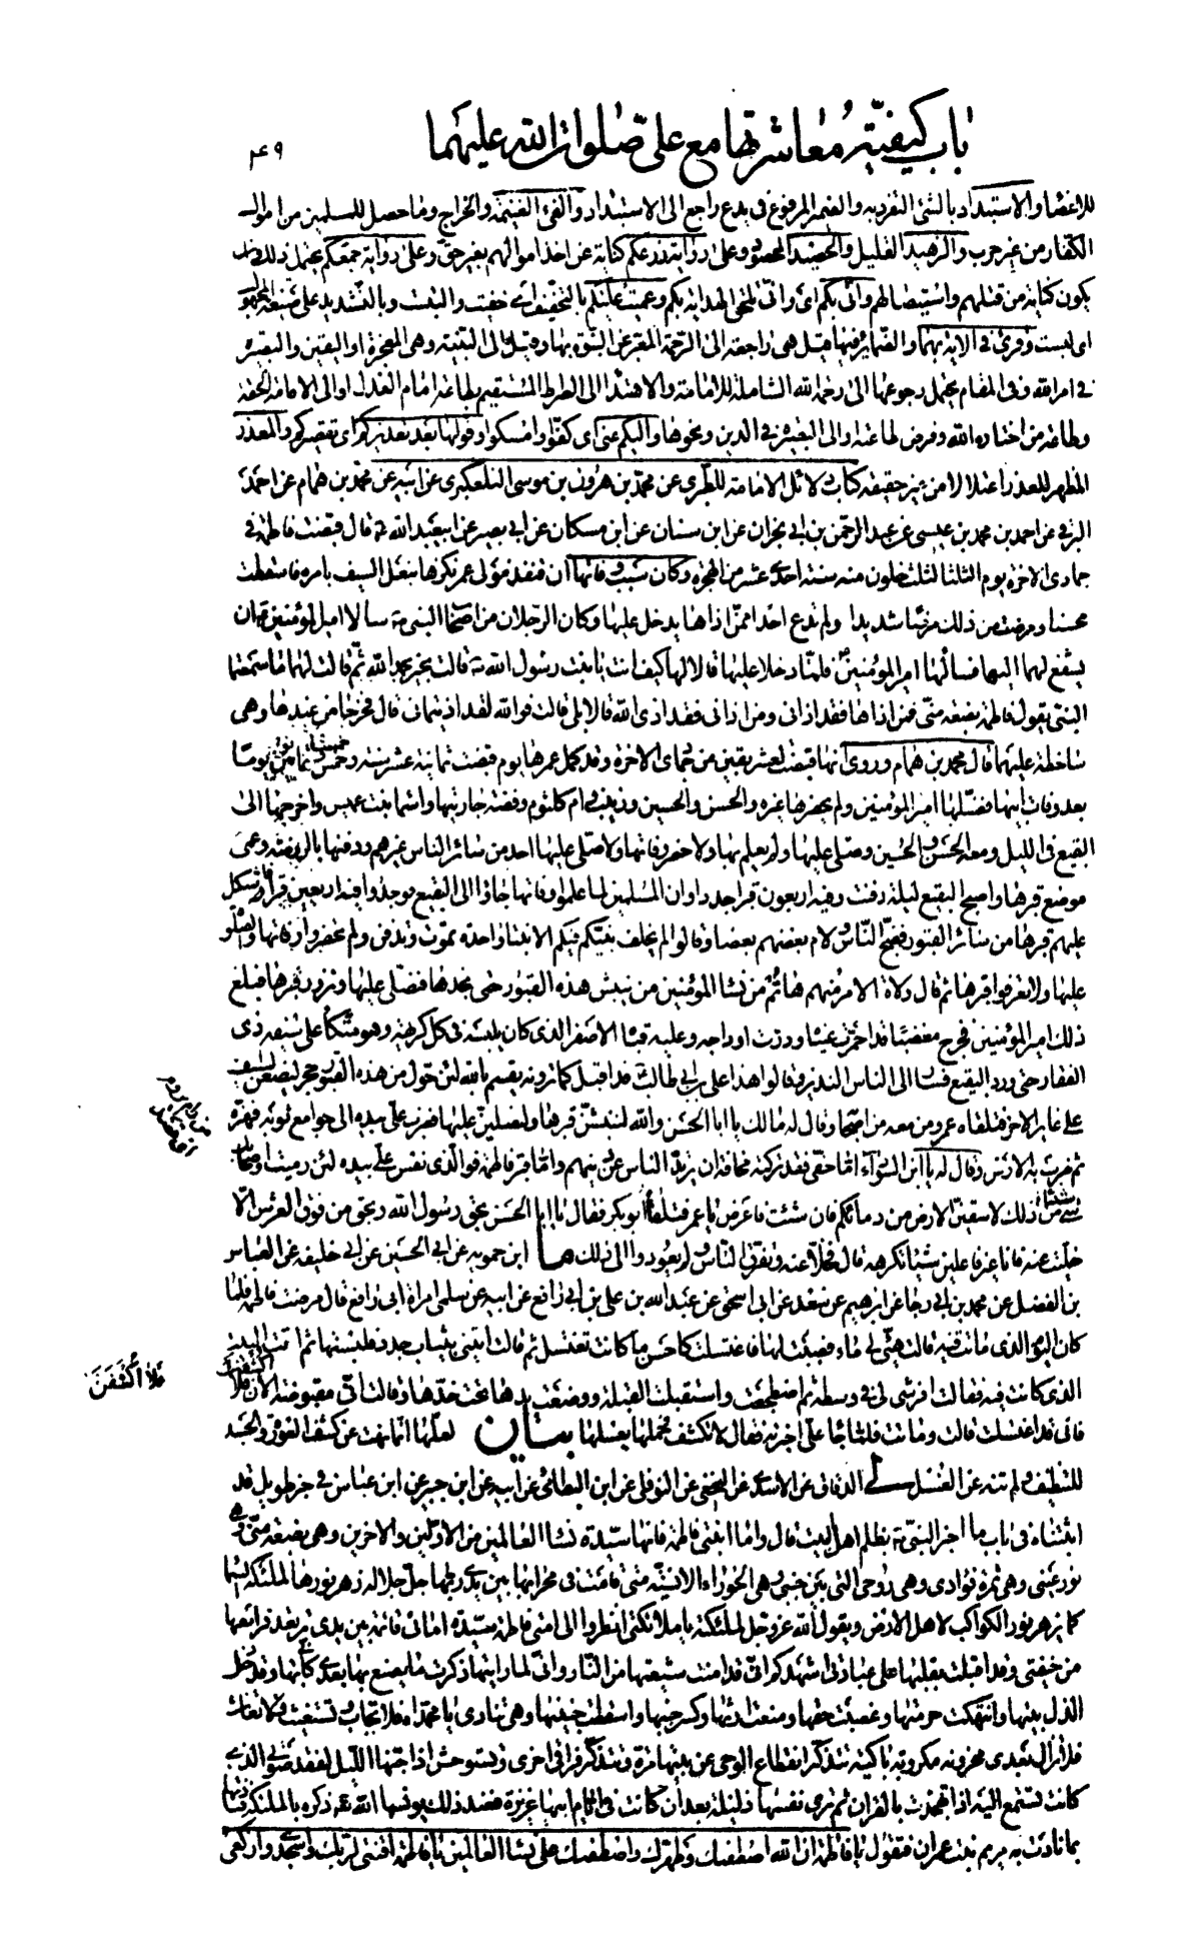 باب كيفيّة مُعاشرتها مع علىّ صلوات الله عليهما
٤٩
للاغضاء والاستبداد بالشئ التفرد به والضمير المرفوع فى يدع راجع الى الاستبداد والفئ الغنيمة والخراج وما حصل للمسلمين من اموال
الكفار من غير حرب والزهيد القليل والحصيد المحصود وعلى رواية نزرعكم كناية عن اخذ اموالهم بغير حق وعلى رواية جمعكم يحتمل ذلك وان
يكون كناية من قتلهم واستيصالهم وانّى بكم اى وانّى تلحق الهداية بكم وعميت عليكم بالتخفيف اى خفيت والتبست وبالتشديد على صيغة المجهول
اى لبست وقرئ فى الاية بهما والضماير فيها قيل هى راجعة الى الرحمة المعبّر عن النبوّة بها وقيل الى البيّنة وهى المعجزة او اليقين والبصيرة
فى امر الله وفى المقام يحتمل رجوعها الى رحمة الله الشاملة للامامة والاهتداء الى الصراط المستقيم بطاعة امام العدل او الى الامامة الحقة
وطاعة من اختاره الله وفرض طاعته او الى البصيرة فى الدين ونحوها واليكم عنى اى كفوا وامسكوا وقولها بعد تعذيركم اى تقصيركم والمعذر
المظهر للعذر اعتلالا من غير حقيقة كتاب دلائل الامامة للطبرى عن محمد بن هرون بن موسى التلعكبرى عن ابيه عن محمد بن همام عن احمد
البرقى عن احمد بن محمد بن عيسى عن عبد الرحمن بن ابى نجران عن ابن سنان عن ابن مسكان عن ابى بصير عن ابيعبد الله ع قال قبضت فاطمة فى
جمادى الاخرة يوم الثلثا لثلث خلون منه سنة احدى عشر من الهجرة وكان سبب وفاتها ان قنفذ مولى عمر لكزها بنعل السيف بامره فاسقطت
محسنا ومرضت من ذلك مرضا شديدا ولم تدع احدا ممن اذاها يدخل عليها وكان الرجلان من اصحاب النبى ص سالا امير المؤمنين ع ان
يشفع لهما اليها فسألها امير المؤمنين فلما دخلا عليها قالا لها كيف انت يا بنت رسول الله ص قالت بخير بحمد الله ثم قالت لهما ما سمعتما
النبى يقول فاطمة بضعة منى فمن اذاها فقد اذانى ومن اذانى فقد اذى الله قالا بلى قالت فوالله لقد اذيتمانى قال فخرجا من عندها وهى
ساخطة عليهما قال محمد بن همام وروى انها قبضت لعشر بقين من جمادى الاخرة وقد كمل عمرها يوم قبضت ثمانية عشر سنة وخمسا وثمانين يوما
بعد وفات ابيها فغسّلها امير المؤمنين ولم يحضرها غيره والحسن والحسين وزينب وام كلثوم وفضة جاريتها واسماء بنت عميس واخرجها الى
البقيع فى الليل ومعه الحسن والحسين وصلى عليها ولم يعلم بها ولا حضر وفاتها ولا صلى عليها احد من سائر الناس غيرهم ودفنها بالروضة وعمى
موضع قبرها واصبح البقيع ليلة دفنت وفيه اربعون قبرا جددا وان المسلمين لما علموا وفاتها جاؤا الى البقيع فوجدوا فيه اربعين قبرا فاشكل
عليهم قبرها من سائر القبور فضج الناس ولام بعضهم بعضا وقالوا لم يخلف نبيكم فيكم الا بنتا واحدة تموت وتدفن ولم تحضروا وفاتها والصلوة
عليها ولا تعرفوا قبرها ثم قال ولاة الامر منهم هاتم من نساء المؤمنين من ينبش هذه القبور حتى نجدها فنصلى عليها ونزور قبرها فبلغ
ذلك امير المؤمنين فخرج مغضبا قد احمرت عيناه ودرت اوداجه وعليه قباه الاصفر الذى كان يلبسه فى كل كريهة وهو متكأ على سيفه ذى
الفقار حتى ورد البقيع فسار الى الناس النذير وقالوا هذا على بن ابى طالب قد اقبل كما ترونه يقسم بالله لئن حوّل من هذه القبور حجر ليضعن السيف
على غابر الاخر فتلقاه عمر ومن معه من اصحابه وقال له مالك يا ابا الحسن والله لننبشن قبرها ولنصلين عليها فضرب على بيده الى جوامع ثوبه فهزه
ثم ضرب به الارض وقال له يا ابن السوداء اما حقى فقد تركته مخافة ان يرتد الناس عن دينهم واما قبر فاطمة فوالذى نفس على بيده لئن رميت واصحابك
شئ من ذلك لاسقين الارض من دمائكم فان شئت فاعرض يا عمر فتلقاه ابو بكر فقال يا ابا الحسن بحق رسول الله وبحق من فوق العرش الا
خلّيت عنه فانا غير فاعلين شيئا تكرهه قال فخلا عنه وتفرق الناس ولم يعودوا الى ذلك ما ابن حمويه عن ابى الحسين عن ابى خليفة عن العباس
بن الفضل عن محمد بن ابى رجا عن ابرهيم عن سعد عن ابى اسحق عن عبد الله بن على بن ابى رافع عن ابيه عن سلمى امراة ابى رافع قال مرضت فاطمة فلما
كان اليوم الذى ماتت فيه قالت هيّئى لى ماء فصببت لها فاغتسلت كاحسن ما كانت تغتسل ثم قالت ايتينى بثياب جدد فلبستها ثم اتت البيت
الذى كانت فيه فقالت افرشى لى فى وسطه ثم اضطجعت واستقبلت القبلة ووضعت يدها تحت خدّها وقالت انى مقبوضة الان فلا اكشفن
فلا اُكْشَفَنَ
فانى قد اغتسلت قالت وماتت فلما جاء على اخبرته فقال لا تكشف فحملها يغسلها بيان لعلها انما نهت عن كشف العورة والجسد
للتنظيف ولم تنه عن الغسل لى الدقاق عن الاسدى عن النخعى عن النوفلى عن ابن البطائنى عن ابيه عن ابن جبير عن ابن عباس فى خبر طويل قد
اثبتناه فى باب ما اخبر النبى ص بظلم اهل البيت قال واما ابنتى فاطمة فانها سيّدة نساء العالمين من الاولين والاخرين وهى بضعة منى وهى
نور عينى وهى ثمرة فؤادى وهى روحى التى بين جنبى وهى الحوراء الانسيّة متى قامت فى محرابها بين يدى ربها جلّ جلاله زهر نورها لملئكة السماء
كما يزهر نور الكواكب لاهل الارض ويقول الله عز وجل لملئكته يا ملائكتى انظروا الى امتى فاطمة سيّدة امائى قائمة بين يدى ترتعد فرائصها
من خيفتى وقد اقبلت بقلبها على عبادتى اشهدكم انى قد امنت شيعتها من النار وانى لما رايتها ذكرت ما يصنع بها بعدى كانى بها وقد دخل
الذل بيتها وانتهكت حرمتها وغصبت حقها ومنعت ارثها وكسر جنبها واسقطت جنينها وهى تنادى يا محمداه فلا تجاب وتستغيث فلا تغاث
فلا تزال بعدى محزونة مكروبة باكية تتذكر انقطاع الوحى عن بيتها مرة وتتذكر فراقى اخرى وتستوحش اذا جنّها الليل لفقد صوتى الذى
كانت تستمع اليه اذا تهجدت بالقران ثم ترى نفسها ذليلة بعد ان كانت فى ايام ابيها عزيزة فعند ذلك يونسها الله تعالى ذكره بالملئكة فنادتها
بما نادت به مريم بنت عمران فتقول يا فاطمة ان الله اصطفيك وطهّرك واصطفيك على نساء العالمين يا فاطمة اقنتى لربك واسجدى واركعى